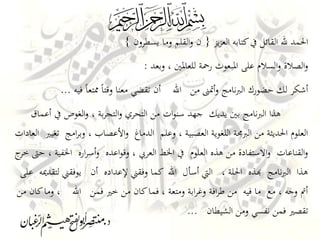 بسم الله الرحمن الرحيم
الحمد لله القائل في كتابه العزيز { ن والقلم وما يسطرون }
والصلاة والسلام على المبعوث رحمة للعالمين ، وبعد :
أشكر لك حضورك البرنامج وأتمنى من الله أن تقضي معنا وقتاً ممتعاً فيه ...
هذا البرنامج بين يديك جهد سنوات من التحري والتجربة ، والغوص في أعماق
العلوم الحديثة من البرمجة اللغوية العصبية ، وعلم الدماغ والأعصاب ، وبرامج تغيير العادات
والقناعات والاستفادة من هذه العلوم في الخط العربي ، وقواعده وأسراره الخفية ، حتى خرج
هذا البرنامج بهذه الحلة ، التي أسأل الله كما وفقني لإعداده أن يوفقني لتقديمه على
أتم وجه ، مع ما فيه من طرافة وغرابة ومتعة ، فما كان من خير فمن الله ، وما كان من
تقصير فمن نفسي ومن الشيطان ...